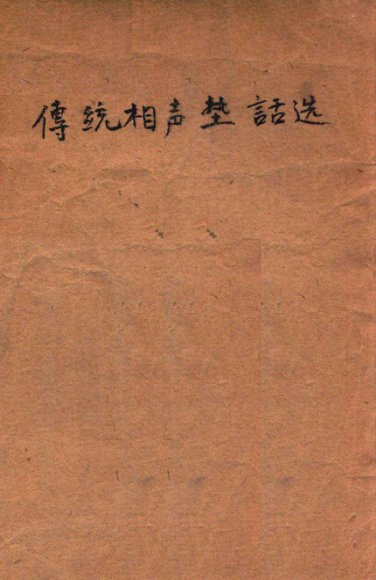 傳統相声垫話选